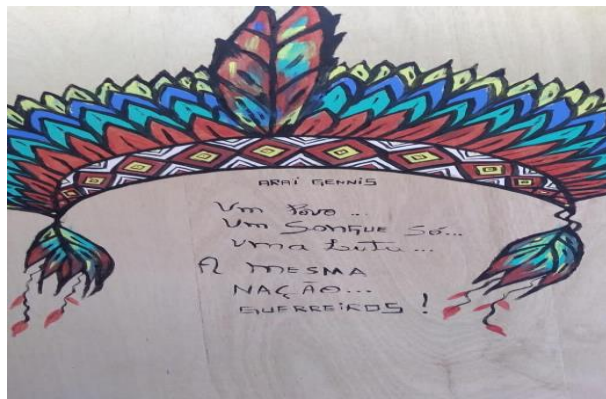 ARAÍ GENNIS
Um Povo ...
Um SANGUE Só...
Uma Luta ...
A MESMA
NAÇÃO...
GUERREIROS !